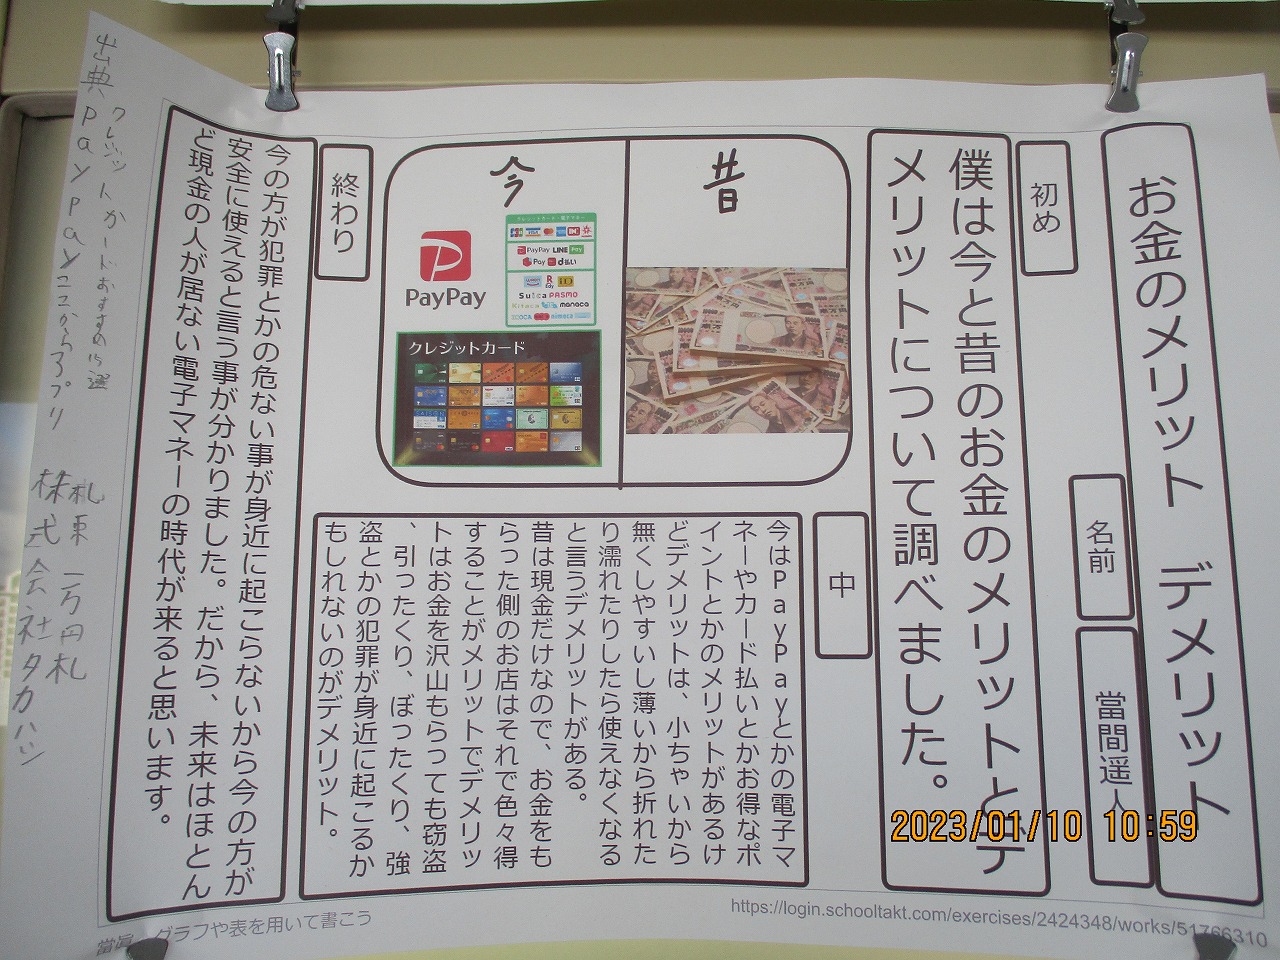 お金のメリット　デメリット
名前
當間遥人
初め
僕は今と昔のお金のメリットとデ
メリットについて調べました。
昔
今
PayPay
クレジットカード・電子マネー
PayPay LINE Pay
Pay d払い
Suica PASMO
Kitaca manaca
nimoca
クレジットカード
中
今はPayPayとかの電子マ
ネーやカード払いとかお得なポ
イントとかのメリットがあるけ
どデメリットは、小ちゃいから
無くしやすいし薄いから折れた
り濡れたりしたら使えなくなる
と言うデメリットがある。
昔は現金だけなので、お金をも
らった側のお店はそれで色々得
することがメリットでデメリッ
トはお金を沢山もらっても窃盗
、引ったくり、ぼったくり、強
盗とかの犯罪が身近に起こるか
もしれないのがデメリット。
終わり
今の方が犯罪とかの危ない事が身近に起こらないから今の方が
安全に使えると言う事が分かりました。だから、未来はほとん
ど現金の人が居ない電子マネーの時代が来ると思います。
出典
クレジットカードおすすめ15選
PayPayここからアプリ
札束 一万円札
株式会社タカハシ
グラフや表を用いて書こう
https://login.schooltakt.com/exercises/2424348/works/51766310
2023/01/10 10:59